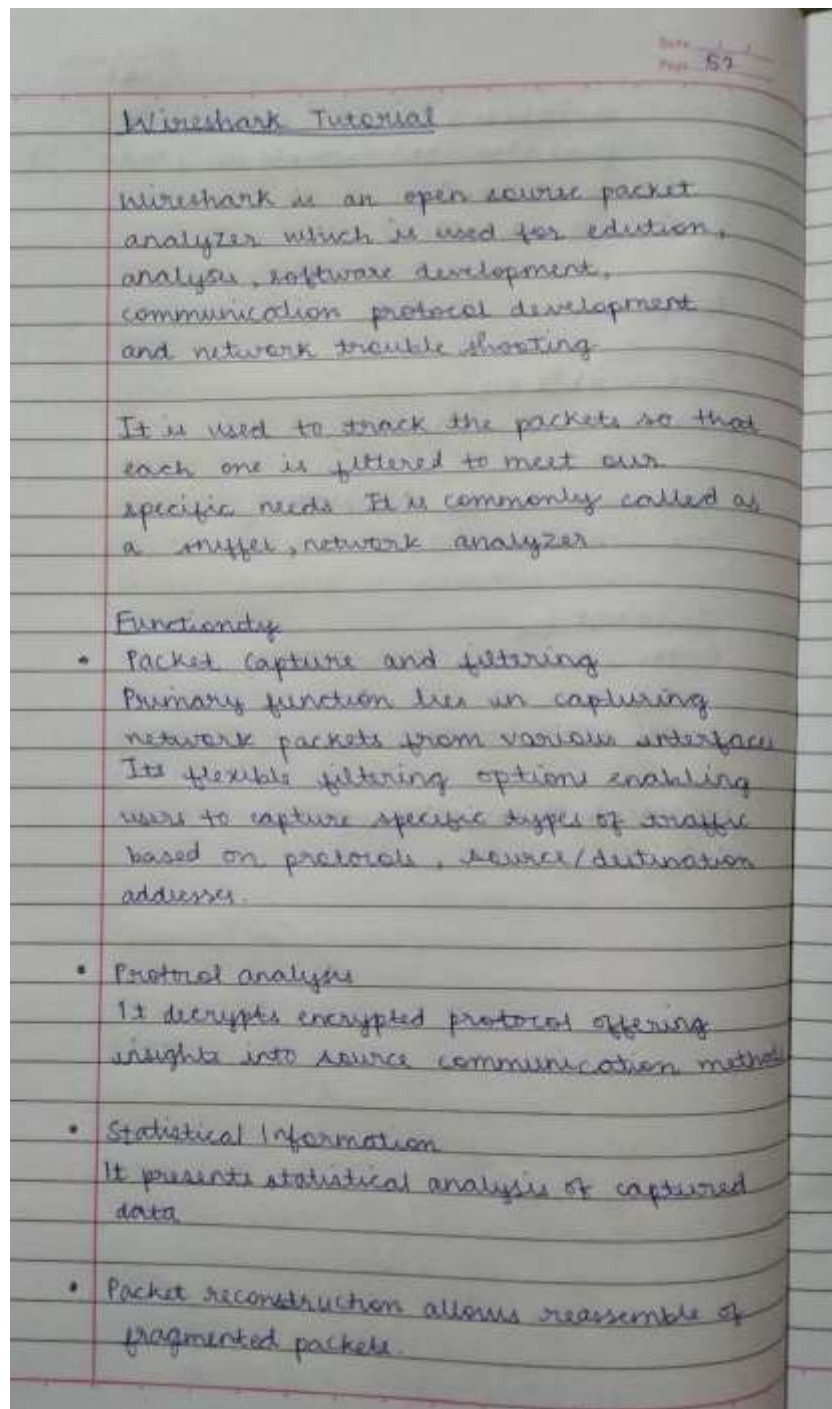 Date / /
Page 57
Wireshark Tutorial
Wireshark is an open source packet
analyzer which is used for edution,
analysis, software development,
communication protocol development
and network trouble shooting.
It is used to track the packets so that
each one is filtered to meet our
specific needs. It is commonly called as
a sniffer, network analyzer
Functiondy
• Packet capture and filtering
Primary function lies in capturing
network packets from various interfaces
Its flexible filtering options enabling
users to capture specific types of traffic
based on protocols, source/destination
addresses.
• Protocol analysis
It decrypts encrypted protocol offering
insights into source communication method
• Statistical Information
It presents statistical analysis of captured
data
• Packet reconstruction allows reassemble of
fragmented packets.